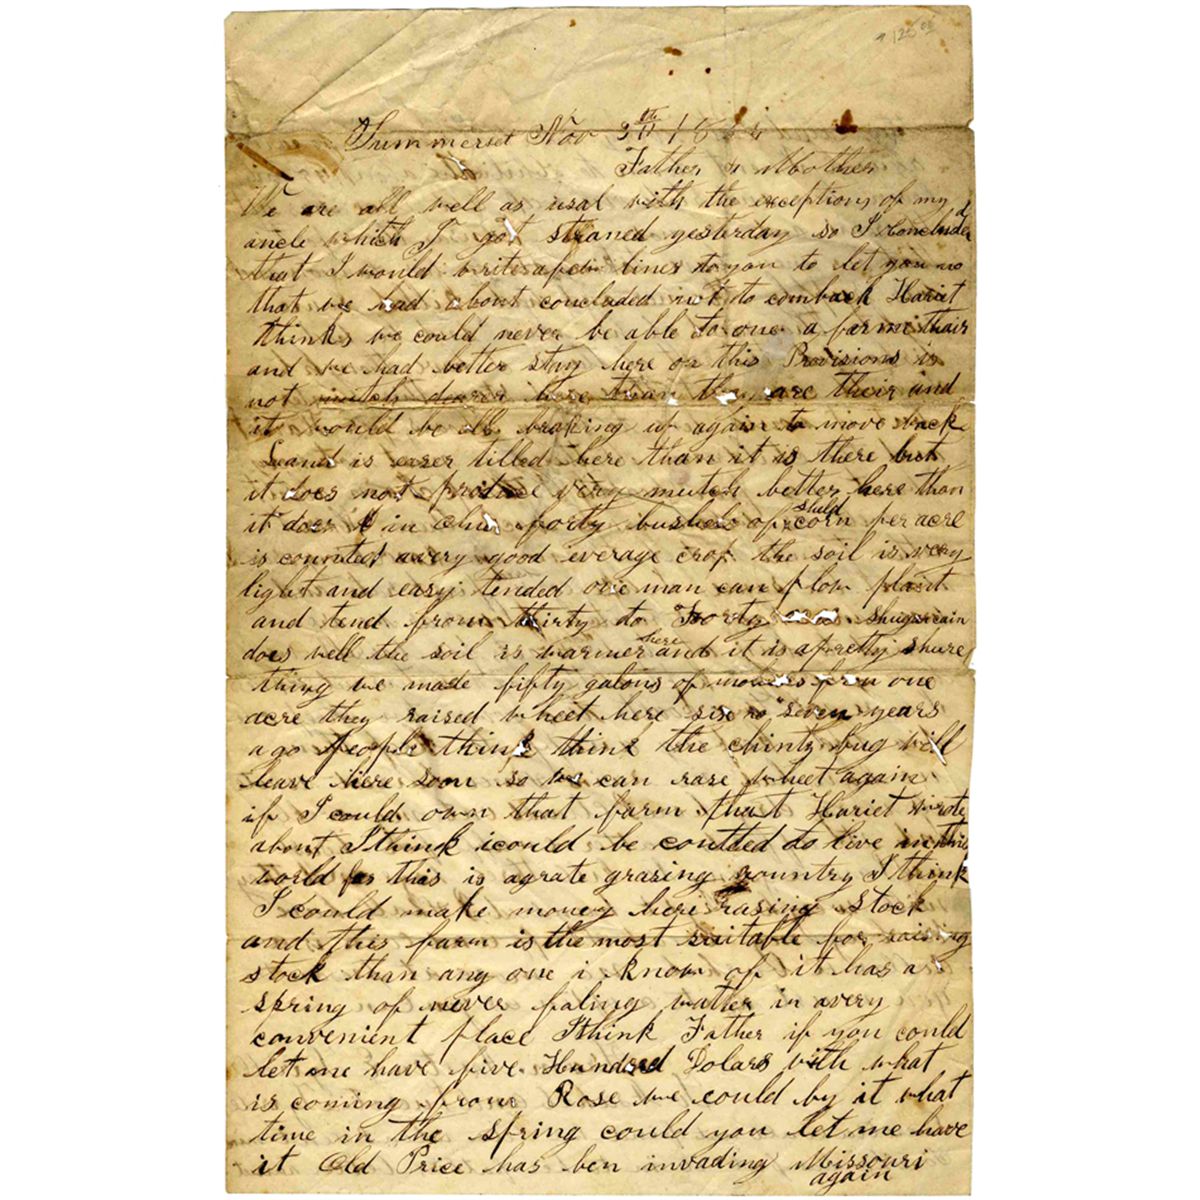 125 00
Summerset Nov 3th 1864
Father & Mother
We are all well as usal with the exceptions of my
ancle which I got straned yesterday so I concluded
that I would write afew lines to you to let you no
that we had about concluded not to comback Hariet
thinks we could never be able to one a farme thair
and we had better stay here on this Provisions is
not mutch dearer here than they are their and
it would be all braking up again to move back
Leand is easer tilled here than it is there but
it does not produce very mutch better here than
it does in Ohio forty bushels of shuld corn per acre
is counted avery good everage crop the soil is very
light and easy tended one man can plow plant
and tend from thirty to Forty shugercain
does well the soil is warmer here and it is apretty shure
thing we made fifty galons of from one
acre they raised wheet here six to seven years
ago people think think the chinty bug will
leave here soon so we can rase wheet again
if I could own that farm that Hariet wrote
about I think icould be coutted to live in this
world for this is agrate grasing country I think
I could make money here rasing stock
and this farm is the most suitable for raising
stock than any one i know of it has a
spring of never faling watter in avery
convenient place Ithink Father if you could
let me have five Hundred Dolars with what
is coming from Rose we could by it what
time in the spring could you let me have
it Old Price has ben invading Missouri
again